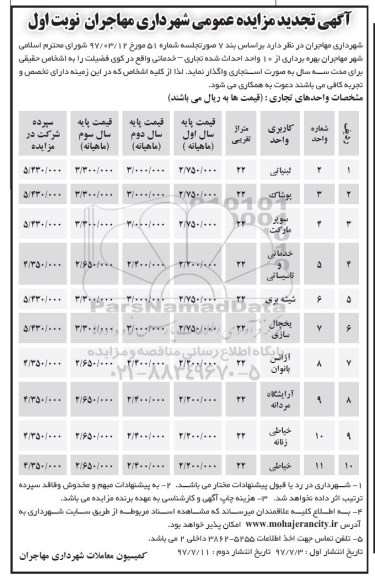 آگهی تجدید مزایده عمومی شهرداری مهاجران نوبت اول
شهرداری مهاجران در نظر دارد براساس بند ۷ صورتجلسه شماره ۵۱ مورخ ۹۷/۰۳/۱۲ شورای محترم اسلامی
شهر مهاجران بهره برداری از ۱۰ واحد احداث شده تجاری – خدماتی واقع در کوی فضیلت را به اشخاص حقیقی
برای مدت سه سال به صورت استجاری واگذار نماید. لذا از کلیه اشخاص که در این زمینه دارای تخصص و
تجربه کافی می باشند دعوت به همکاری می شود.
مشخصات واحدهای تجاری : (قیمت ها به ریال می باشند)
ردیف شماره واحد کاربری واحد متراژ تقریبی قیمت پایه سال اول (ماهیانه) قیمت پایه سال دوم (ماهیانه) قیمت پایه سال سوم (ماهیانه) سپرده شرکت در مزایده
۱ ۲ لبنیاتی ۲۲ ۲/۷۵۰/۰۰۰ ۳/۰۰۰/۰۰۰ ۳/۳۰۰/۰۰۰ ۵/۴۳۰/۰۰۰
۲ ۳ پوشاک ۲۲ ۲/۷۵۰/۰۰۰ ۳/۰۰۰/۰۰۰ ۳/۳۰۰/۰۰۰ ۵/۴۳۰/۰۰۰
۳ ۴ سوپر مارکت ۲۲ ۲/۷۵۰/۰۰۰ ۳/۰۰۰/۰۰۰ ۳/۳۰۰/۰۰۰ ۵/۴۳۰/۰۰۰
۴ ۵ خدماتی و تاسیساتی ۲۲ ۲/۲۰۰/۰۰۰ ۲/۴۰۰/۰۰۰ ۲/۶۵۰/۰۰۰ ۴/۳۵۰/۰۰۰
۵ ۶ شیشه بری ۲۲ ۲/۷۵۰/۰۰۰ ۳/۰۰۰/۰۰۰ ۳/۳۰۰/۰۰۰ ۵/۴۳۰/۰۰۰
۶ ۷ یخچال سازی ۲۲ ۲/۷۵۰/۰۰۰ ۳/۰۰۰/۰۰۰ ۳/۳۰۰/۰۰۰ ۵/۴۳۰/۰۰۰
۷ ۸ آژانس بانوان ۲۲ ۲/۲۰۰/۰۰۰ ۲/۴۰۰/۰۰۰ ۲/۶۵۰/۰۰۰ ۴/۳۵۰/۰۰۰
۸ ۹ آرایشگاه مردانه ۲۲ ۲/۲۰۰/۰۰۰ ۲/۴۰۰/۰۰۰ ۲/۶۵۰/۰۰۰ ۴/۳۵۰/۰۰۰
۹ ۱۰ خیاطی زنانه ۲۲ ۲/۲۰۰/۰۰۰ ۲/۴۰۰/۰۰۰ ۲/۶۵۰/۰۰۰ ۴/۳۵۰/۰۰۰
۱۰ ۱۱ خیاطی ۲۲ ۲/۲۰۰/۰۰۰ ۲/۴۰۰/۰۰۰ ۲/۶۵۰/۰۰۰ ۴/۳۵۰/۰۰۰
ParsNamadData
پایگاه اطلاع رسانی مناقصه و مزایده
۰۲۱-۸۸۳۴۹۶۷۰-۵
۱– شهرداری در رد یا قبول پیشنهادات مختار می باشد. ۲– به پیشنهادات مبهم و مخدوش وفاقد سپرده
ترتیب اثر داده نخواهد شد. ۳– هزینه چاپ آگهی و کارشناسی به عهده برنده مزایده می باشد.
۴– به اطلاع کلیه علاقمندان میرساند که مشاهده اسناد مربوطه از طریق سایت شهرداری به
آدرس www.mohajerancity.ir امکان پذیر خواهد بود.
۵– تلفن تماس جهت اخذ اطلاعات ۵۲۵۵–۳۸۶۲ داخلی ۲ می باشد.
تاریخ انتشار اول : ۹۷/۷/۳ تاریخ انتشار دوم : ۹۷/۷/۱۱
کمیسیون معاملات شهرداری مهاجران